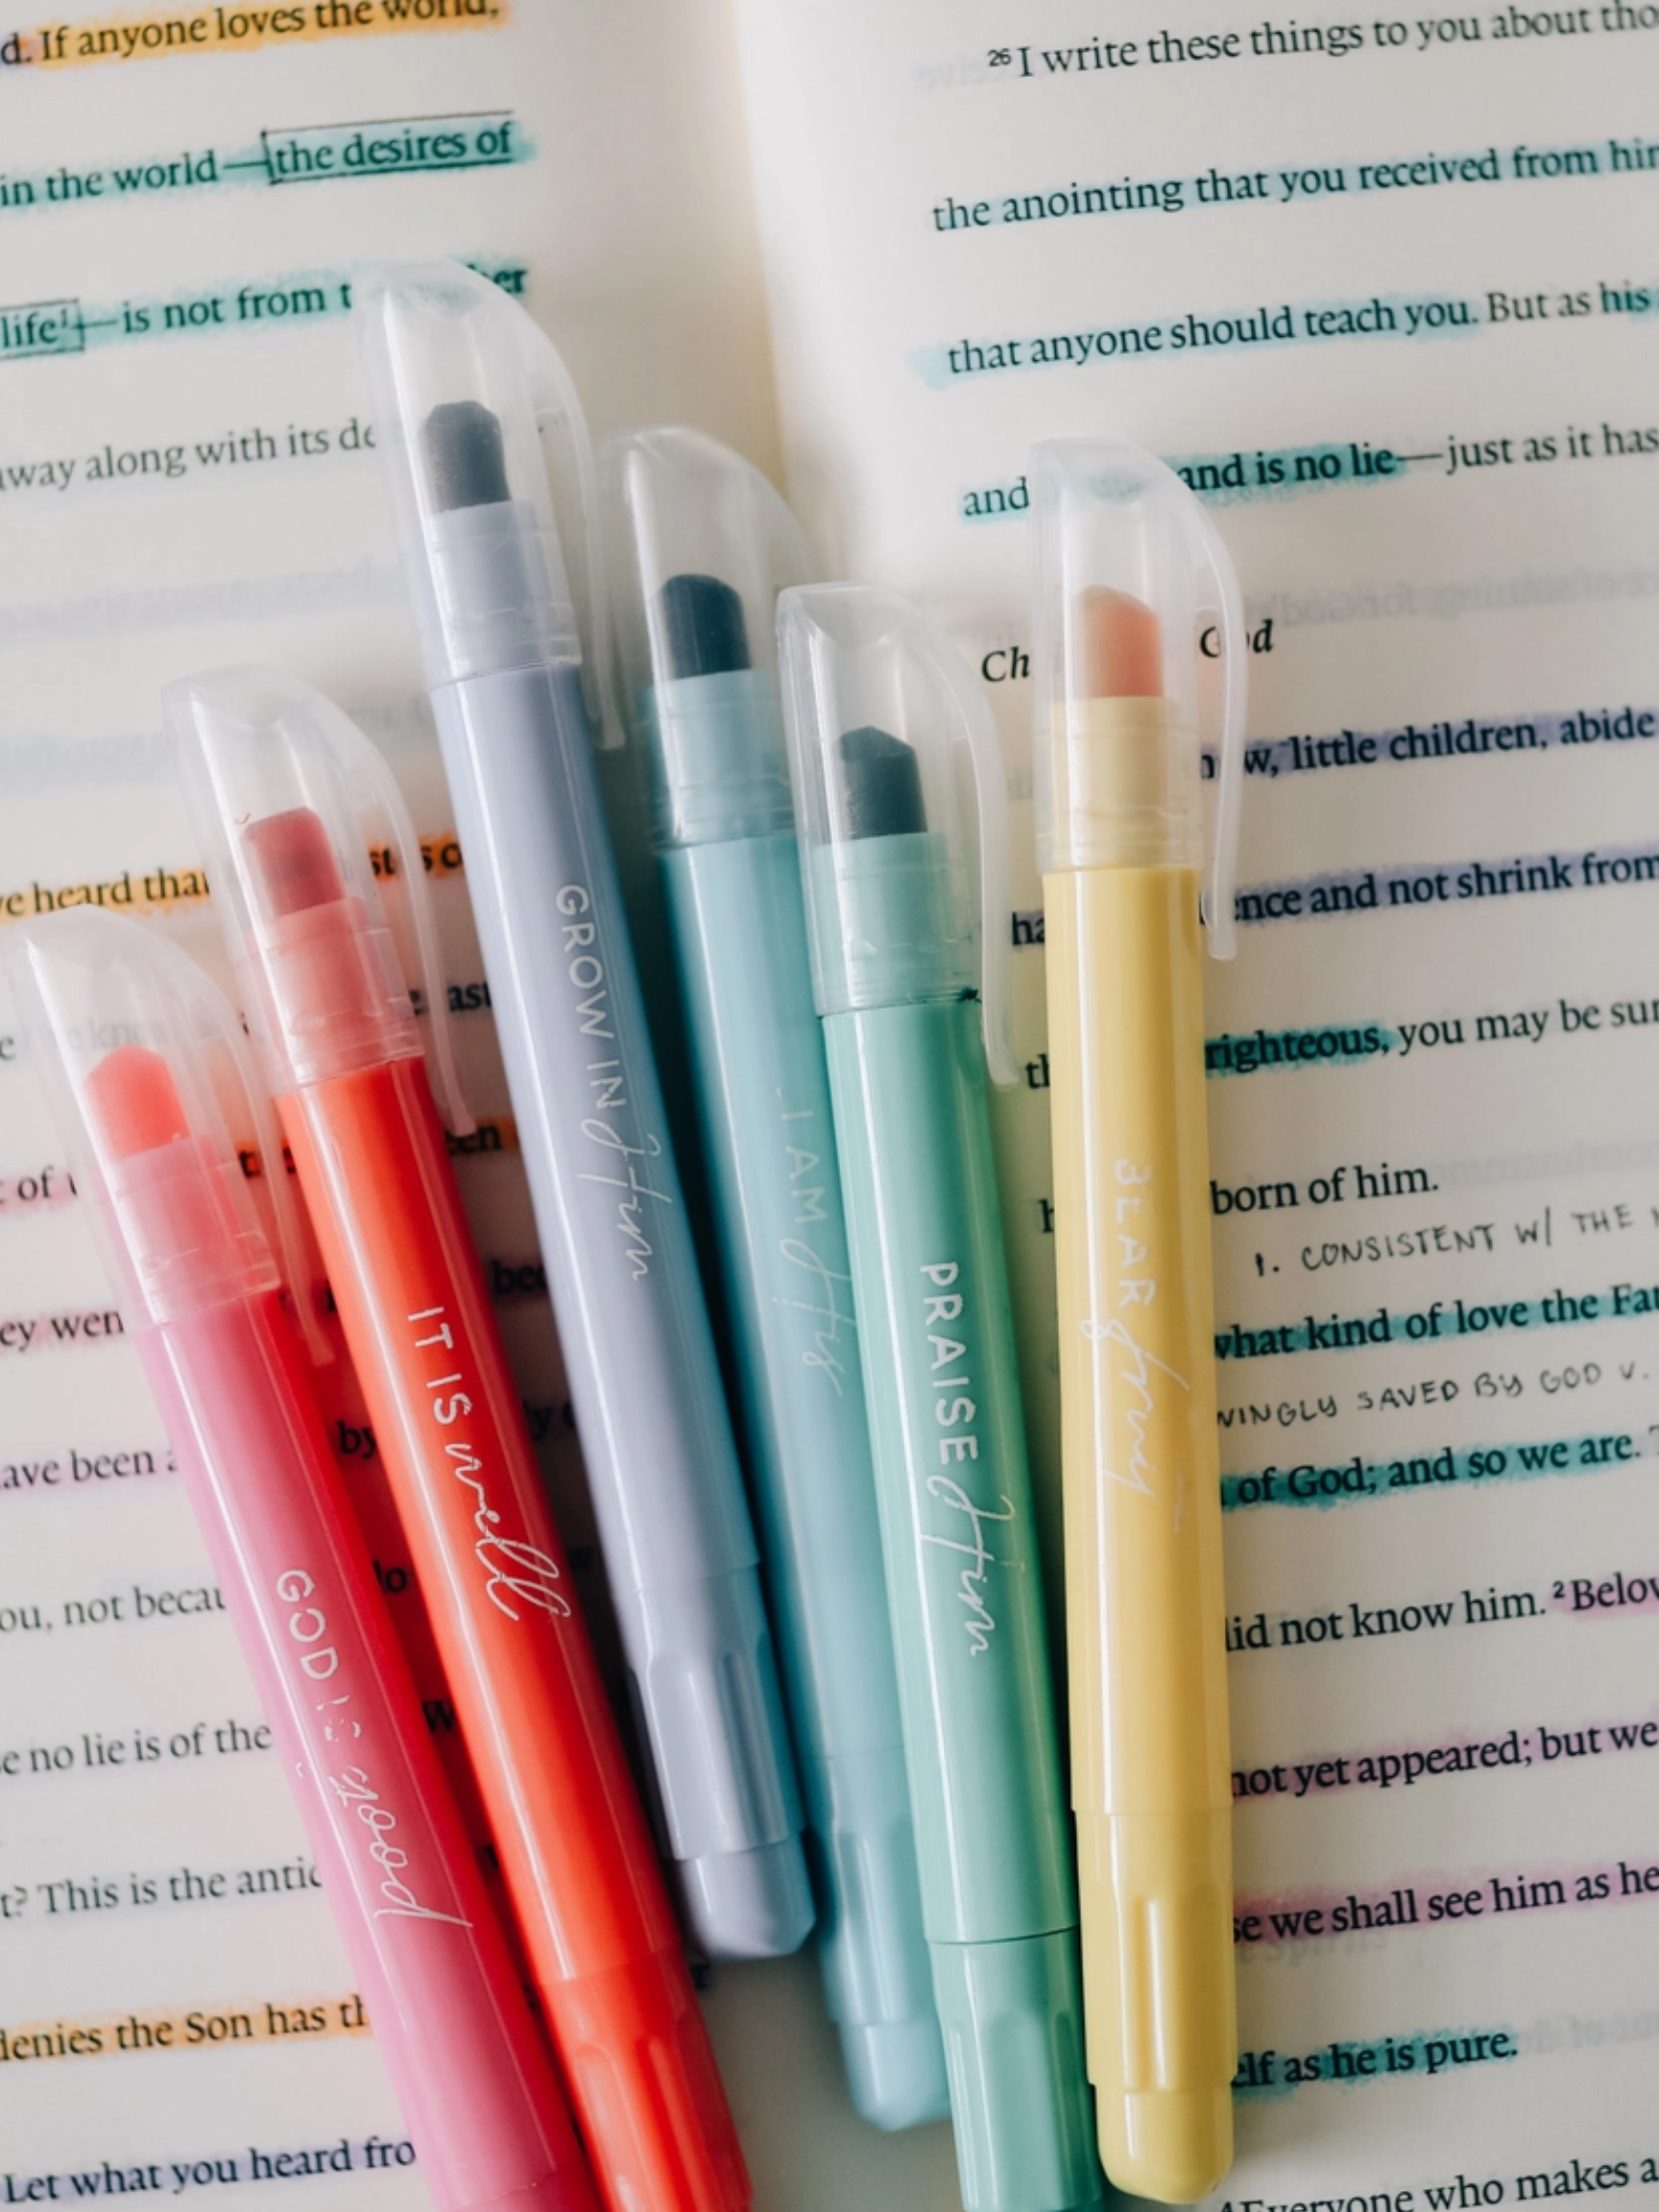 d. If anyone loves the world,
in the world—the desires of
life¹—is not from t er
away along with its de
ve heard that
of
ey wen
ave been a by
ou, not becau
e no lie is of the
t? This is the antic
denies the Son has th
Let what you heard fro
26 I write these things to you about tho
the anointing that you received from him
that anyone should teach you. But as his
and and is no lie—just as it has
Ch God
w, little children, abide
ha ence and not shrink from
righteous, you may be sur
born of him.
1. CONSISTENT W/ THE
what kind of love the Fat
WINGLY SAVED BY GOD V.
of God; and so we are. T
did not know him. ² Belov
not yet appeared; but we
se we shall see him as he
elf as he is pure.
Everyone who makes a
GOD IS good
IT IS well
GROW IN Him
I AM His
PRAISE Him
BEAR fruit